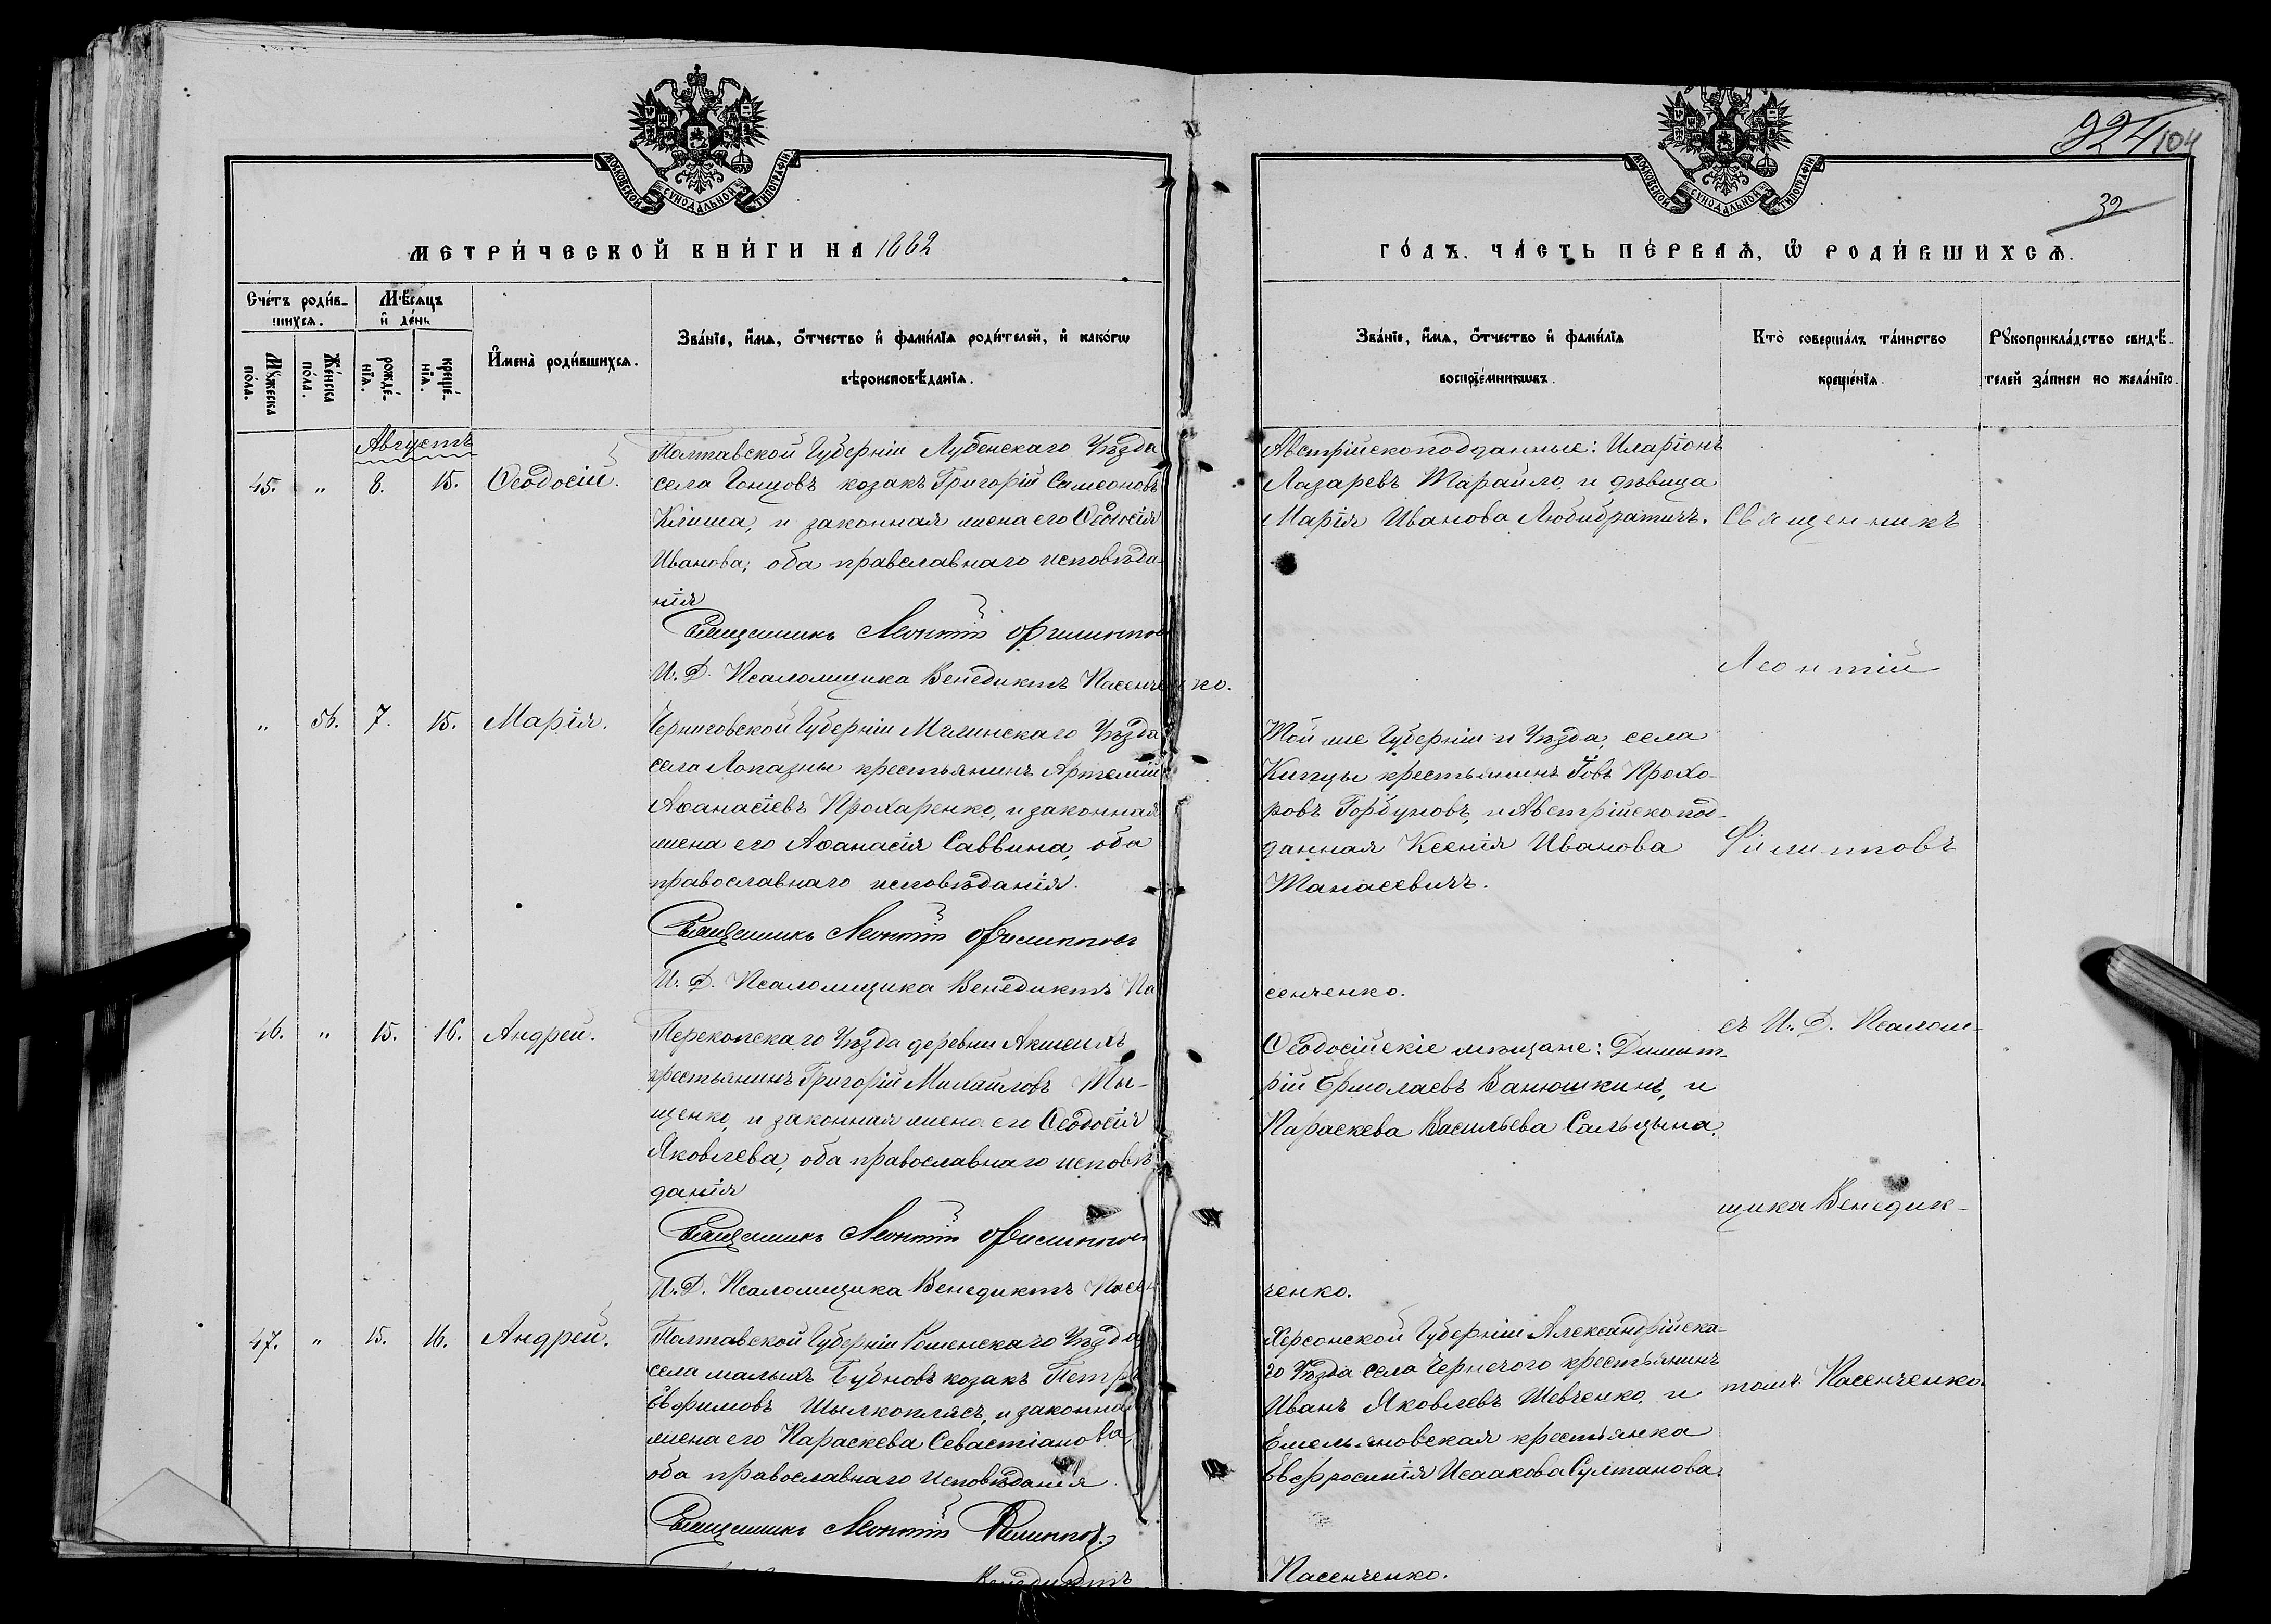 МОСКОВСКОЙ СѴНОДАЛЬНОЙ ТИПОГРАФІИ
МЕТРИ́ЧЕСКОЙ КНИ́ГИ НА 1882
Сче́тъ роди́в-
шихсѧ.
Мѣ́сѧцъ
и҆ де́нь
Мꙋ́жеска
по́ла.
Же́нска
по́ла.
рожде́-
нїѧ.
креще́-
нїѧ.
И҆мена̀ роди́вшихсѧ.
Зва́нїе, и҆́мѧ, ѻ҆́тчество и҆ фами́лїѧ роди́телей, и҆ како́гѡ
вѣроисповѣ́данїѧ.
Августъ
45. " 8. 15. Ѳеодосій.
Полтавской Губерніи Лубенскаго Уѣзда
села Гонцовъ козакъ Григорій Симеоновъ
Кліша, и законная жена его Ѳеодосія
Иванова, оба православнаго исповѣда-
нія
Священникъ Леонтій Филиппов
И. Д. Псаломщика Венедиктъ Пасенченко.
" 56. 7. 15. Марія.
Черниговской Губерніи Мглинскаго Уѣзда
села Лопазны крестьянинъ Артемій
Аѳанасіевъ Прохаренко, и законная
жена его Аѳанасія Саввина, оба
православнаго исповѣданія.
Священникъ Леонтій Филиппов
И. Д. Псаломщика Венедиктъ Па
46. " 15. 16. Андрей.
Перекопскаго Уѣзда деревни
крестьянинъ Григорій Михайловъ Ты-
щенко, и законная жена его Ѳеодосія
Яковлева, оба православнаго исповѣ
данія
Священникъ Леонтій Филиппов
И. Д. Псаломщика Венедиктъ Пасен
47. " 15. 16. Андрей.
Полтавской Губерніи Роменскаго Уѣзда
села малыхъ Бубновъ козакъ Петръ
Евфимовъ Шылкоплясъ, и законная
жена его Параскева Севастіанова,
оба православнаго исповѣданія.
Священникъ Леонтій Филиппов
Венедиктъ
МОСКОВСКОЙ СѴНОДАЛЬНОЙ ТИПОГРАФІИ
324 104
39
ГО́ДЪ. ЧА́СТЬ ПЕ́РВАѦ, Ѡ҆ РОДИ́ВШИХСѦ.
Зва́нїе, и҆́мѧ, ѻ҆́тчество и҆ фами́лїѧ
воспрїе́мникѡвъ.
Кто̀ соверша́лъ та́инство
креще́нїѧ.
Рꙋкоприкла́дство свидѣ́-
телей за́писи по жела́нїю.
Австрійскоподданные: Иларіонъ
Лазаревъ Шарайло, и дѣвица
Марія Иванова Любибратичъ.
Той же Губерніи и Уѣзда, села
крестьянинъ Іовъ Прохо-
ровъ Горбуновъ, и Австрійскопод-
данная Ксенія Иванова
Танасевичъ.
сенченко.
Ѳеодосійскіе мѣщане: Димит-
рій Ермолаевъ Ванюшкинъ, и
Параскева Васильева Сальцына.
ченко.
Херсонской Губерніи Александрійска-
го Уѣзда села Чернечого крестьянинъ
Иванъ Яковлевъ Шевченко, и
Емельяновская крестьянка
Евфросинія Исаакова Султанова.
Пасенченко.
Священникъ
Леонтій
Филипповъ
съ И. Д. Псалом-
щика Венедик-
томъ Пасенченко.